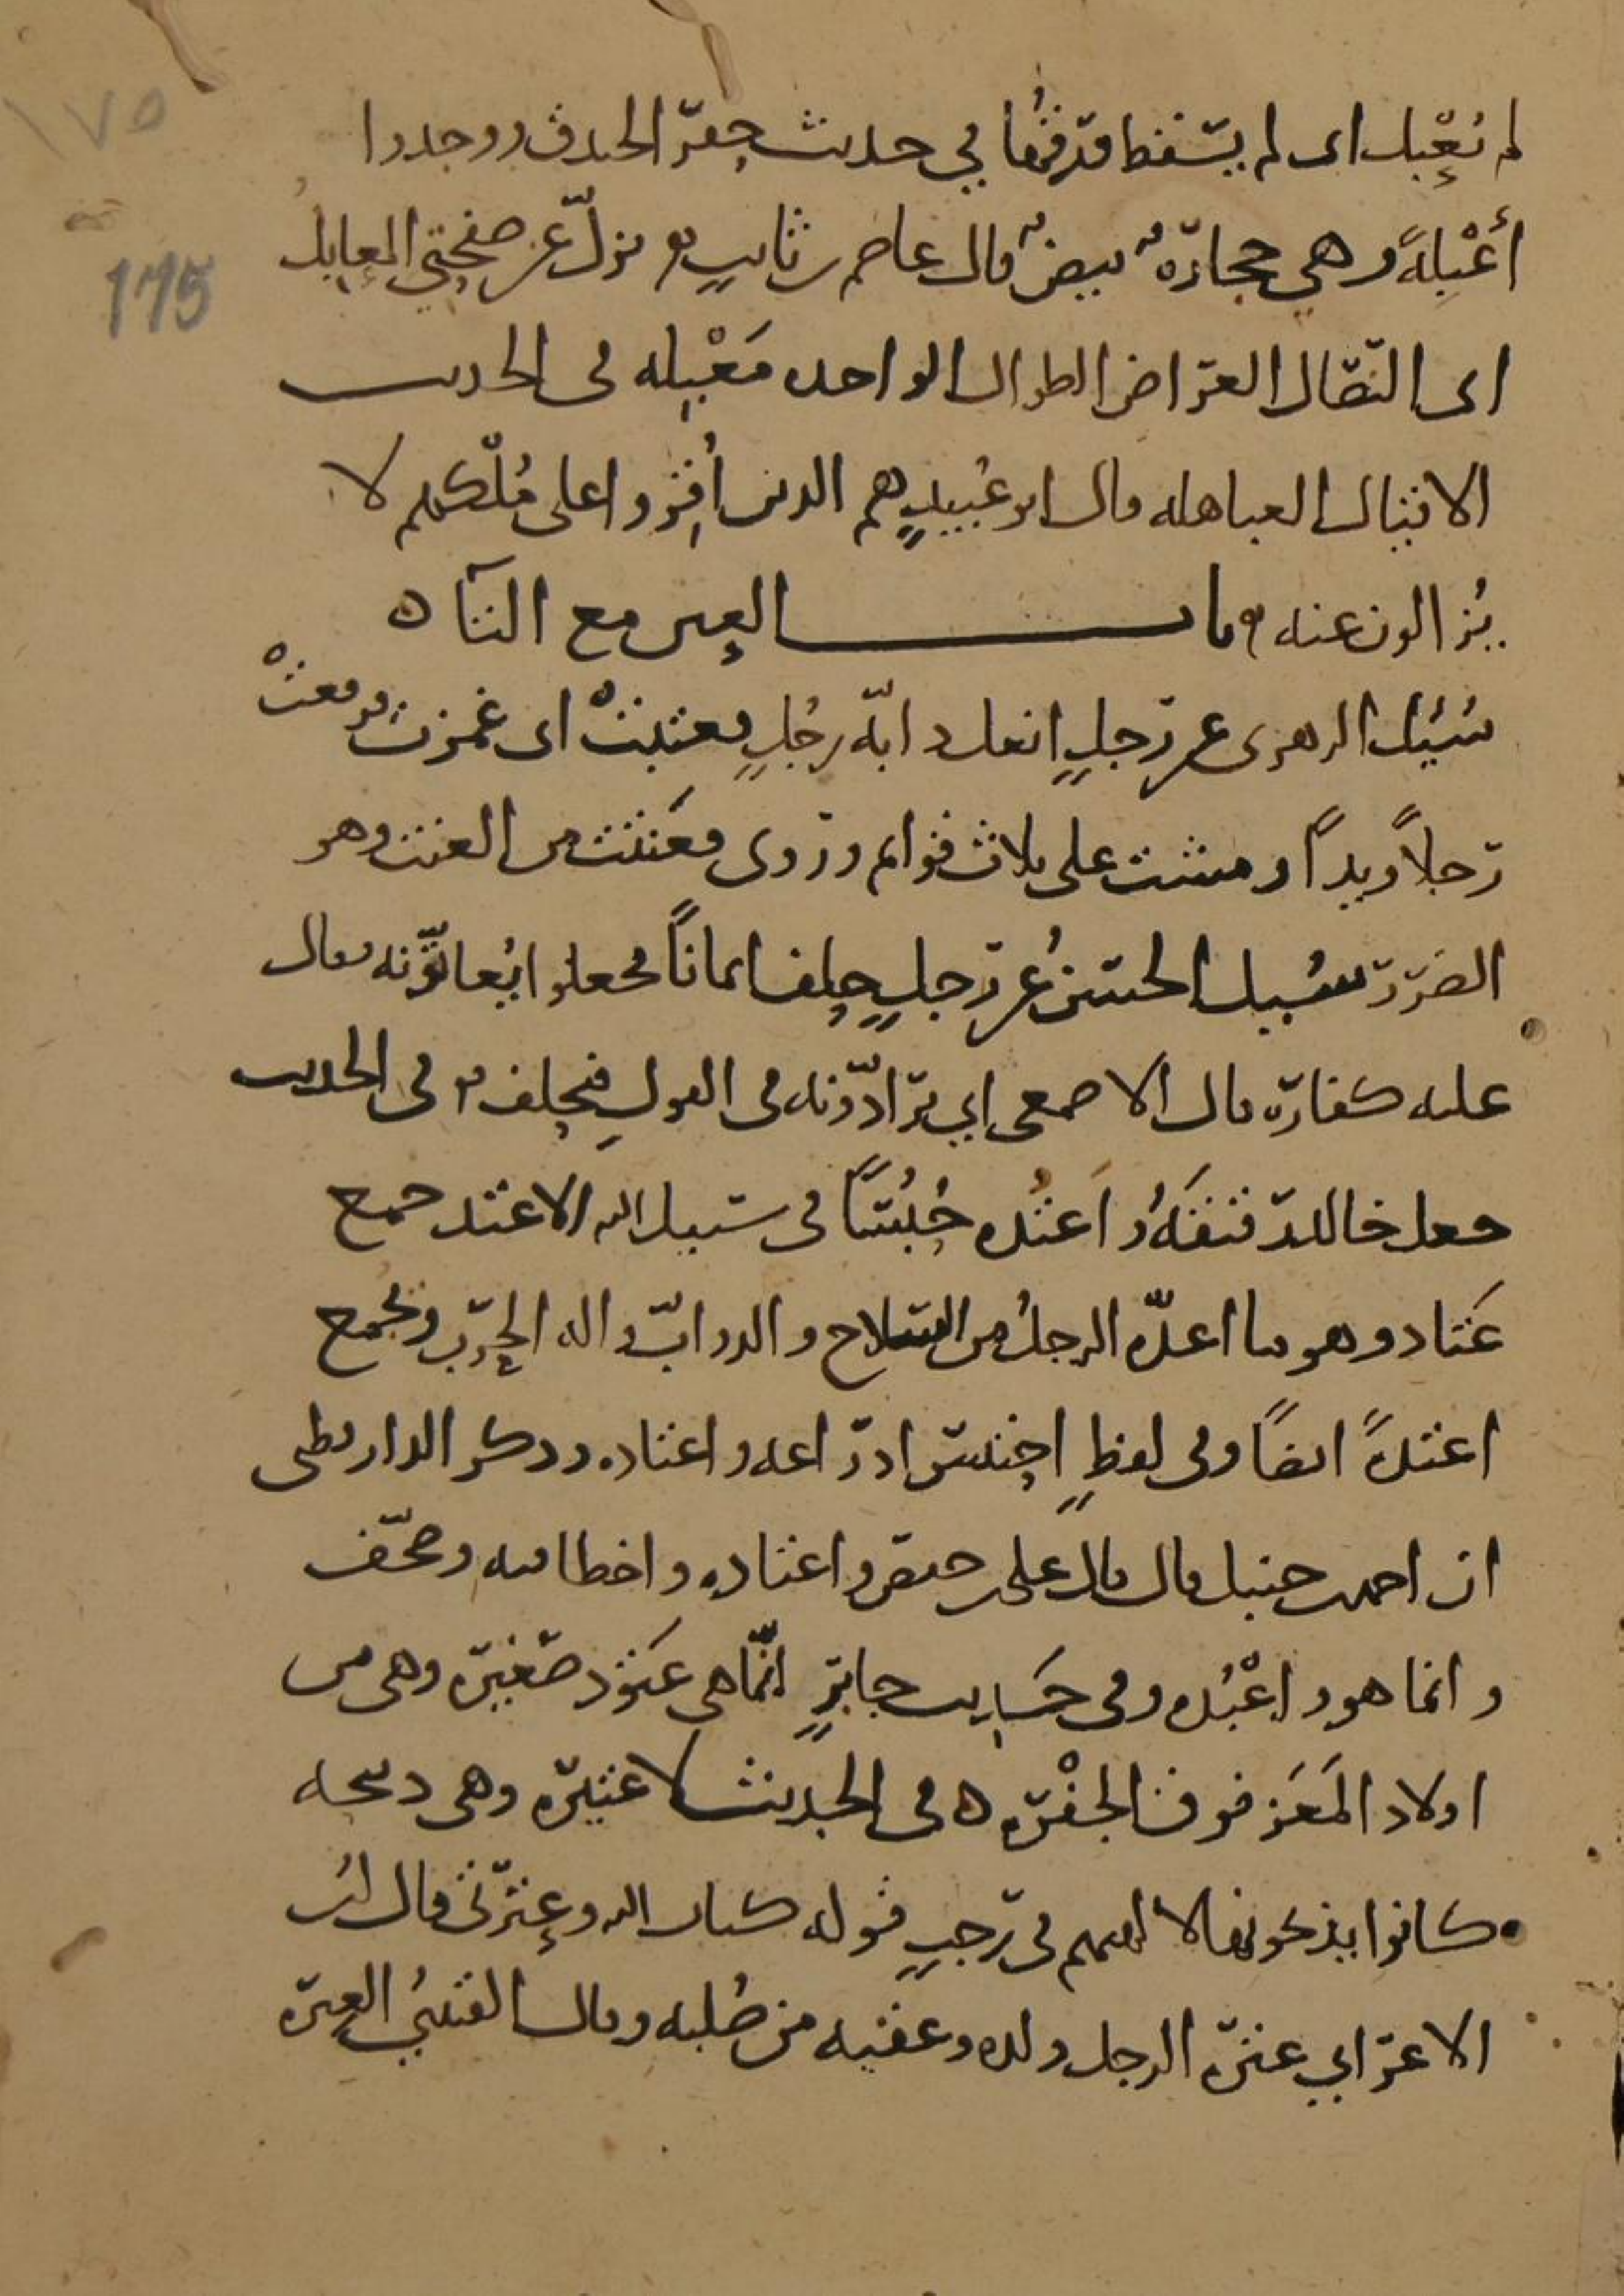 ١٧٥
175
لم تُعْبَل اى لم يسقط ورقها في حديث حفر الخندق ووجدوا
أَعْبِلَةً وهي حجارة بيض قال عاصم بن ثابت تزلّ عن صفحتي المعابل
اى النصال العراض الطوال الواحده مَعْبَله فى الحديث
الاقيال العباهله قال ابو عُبيدٍ هم الذين أُقِرّوا على مُلْكهم لا
يُزالون عنه باب العين مع التآء
سُئِل الزهرى عن رجلٍ انعل دابّه رجُلٍ فعتبتْ اى غمزت فرفعتْ
رجلاً ويداً ومشت على ثلاث قوايم وروى فعَنتت من العنت وهو
الضرر سُئِل الحسنُ عن رجلٍ حلف ايماناً فجعلوا يُعاتّونه فقال
عليه كفارة قال الاصمعى اي يرادّونه فى القولِ فيحلف فى الحديث
جعل خالد رقيقَهُ واَعتُده حُبُسًا فى سبيل الله الاعتد جمع
عَتاد وهو ما اعدّه الرجلُ من السلاح والدوابّ واله الحرب ويجمع
اعتدةً ايضاً وفى لفظٍ احتبس ادراعه واعتاده وذكر الدارقطى
ان احمد بن حنبل قال قال على بن حفص واعتاده واخطا فيه وصحّف
وانما هو واعْتُده وفى حَديث جابرٍ انّما هى عَتود صغيره وهى من
اولاد المَعَز فوق الجفْره ه فى الحديث لا عتيره وهى ذبيحه
كانوا يذبحونها لالهتهم فى رجبٍ قوله كتاب الله وعِترتى قال ابن
الاعرابي عترة الرجل ولده وعقبه من صُلبه وقال القتبىُ العتره